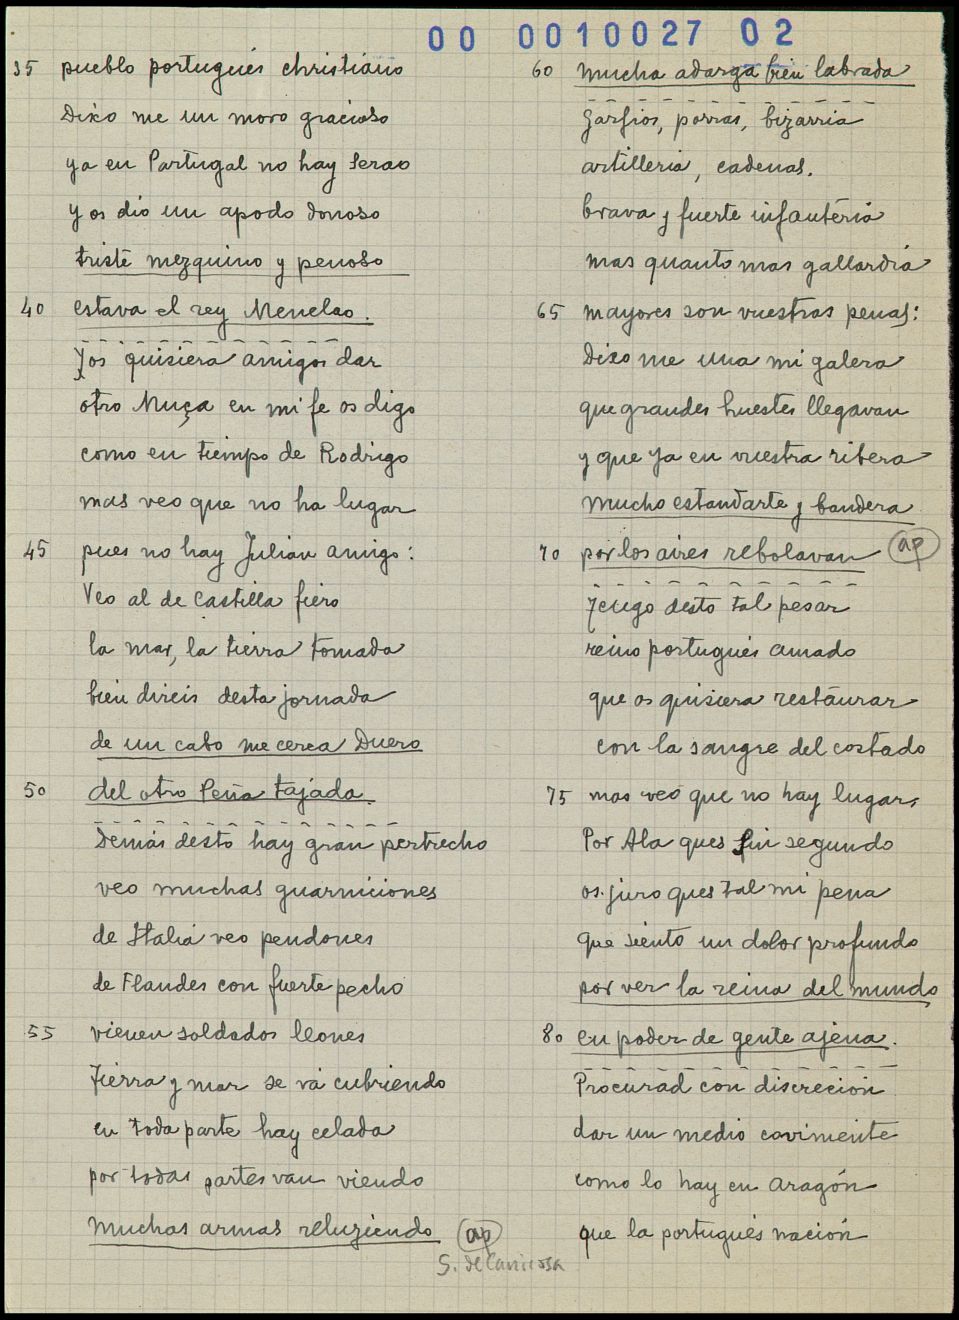 00 0010027 02
35 pueblo portugués christiano
Dixo me un moro gracioso
ya en Portugal no hay serao
y os dio un apodo donoso
triste mezquino y penoso
40 estava el rey Menelao.
Yos quisiera amigos dar
otro Muça en mi fe os digo
como en tiempo de Rodrigo
mas veo que no ha lugar
45 pues no hay Julián amigo:
Veo al de Castilla fiero
la mar, la tierra tomada
bien direis desta jornada
de un cabo me cerca Duero
50 del otro Peña tajada.
Demás desto hay gran pertrecho
veo muchas guarniciones
de Italia veo pendones
de Flandes con fuerte pecho
55 vienen soldados leones
Tierra y mar se va cubriendo
en toda parte hay celada
por todas partes van viendo
muchas armas reluziendo (ap)
S. de
60 mucha adarga bien labrada
Garfios, porras, bizarria
artilleria, cadenas.
brava y fuerte infantéria
mas quanto mas gallardia
65 mayores son vuestras penas:
Dixo me una mi galera
que grandes huestes llegavan
y que ya en vuestra ribera
mucho estandarte y bandera
70 por los aires rebolavan (ap)
Tengo desto tal pesar
reino portugués amado
que os quisiera restaurar
con la sangre del costado
75 mas veo que no hay lugar,
Por Ala ques sin segundo
os juro ques tal mi pena
que siento un dolor profundo
por ver la reina del mundo
80 en poder de gente ajena.
Procurad con discreción
dar un medio
como lo hay en Aragón
que la portugués nación